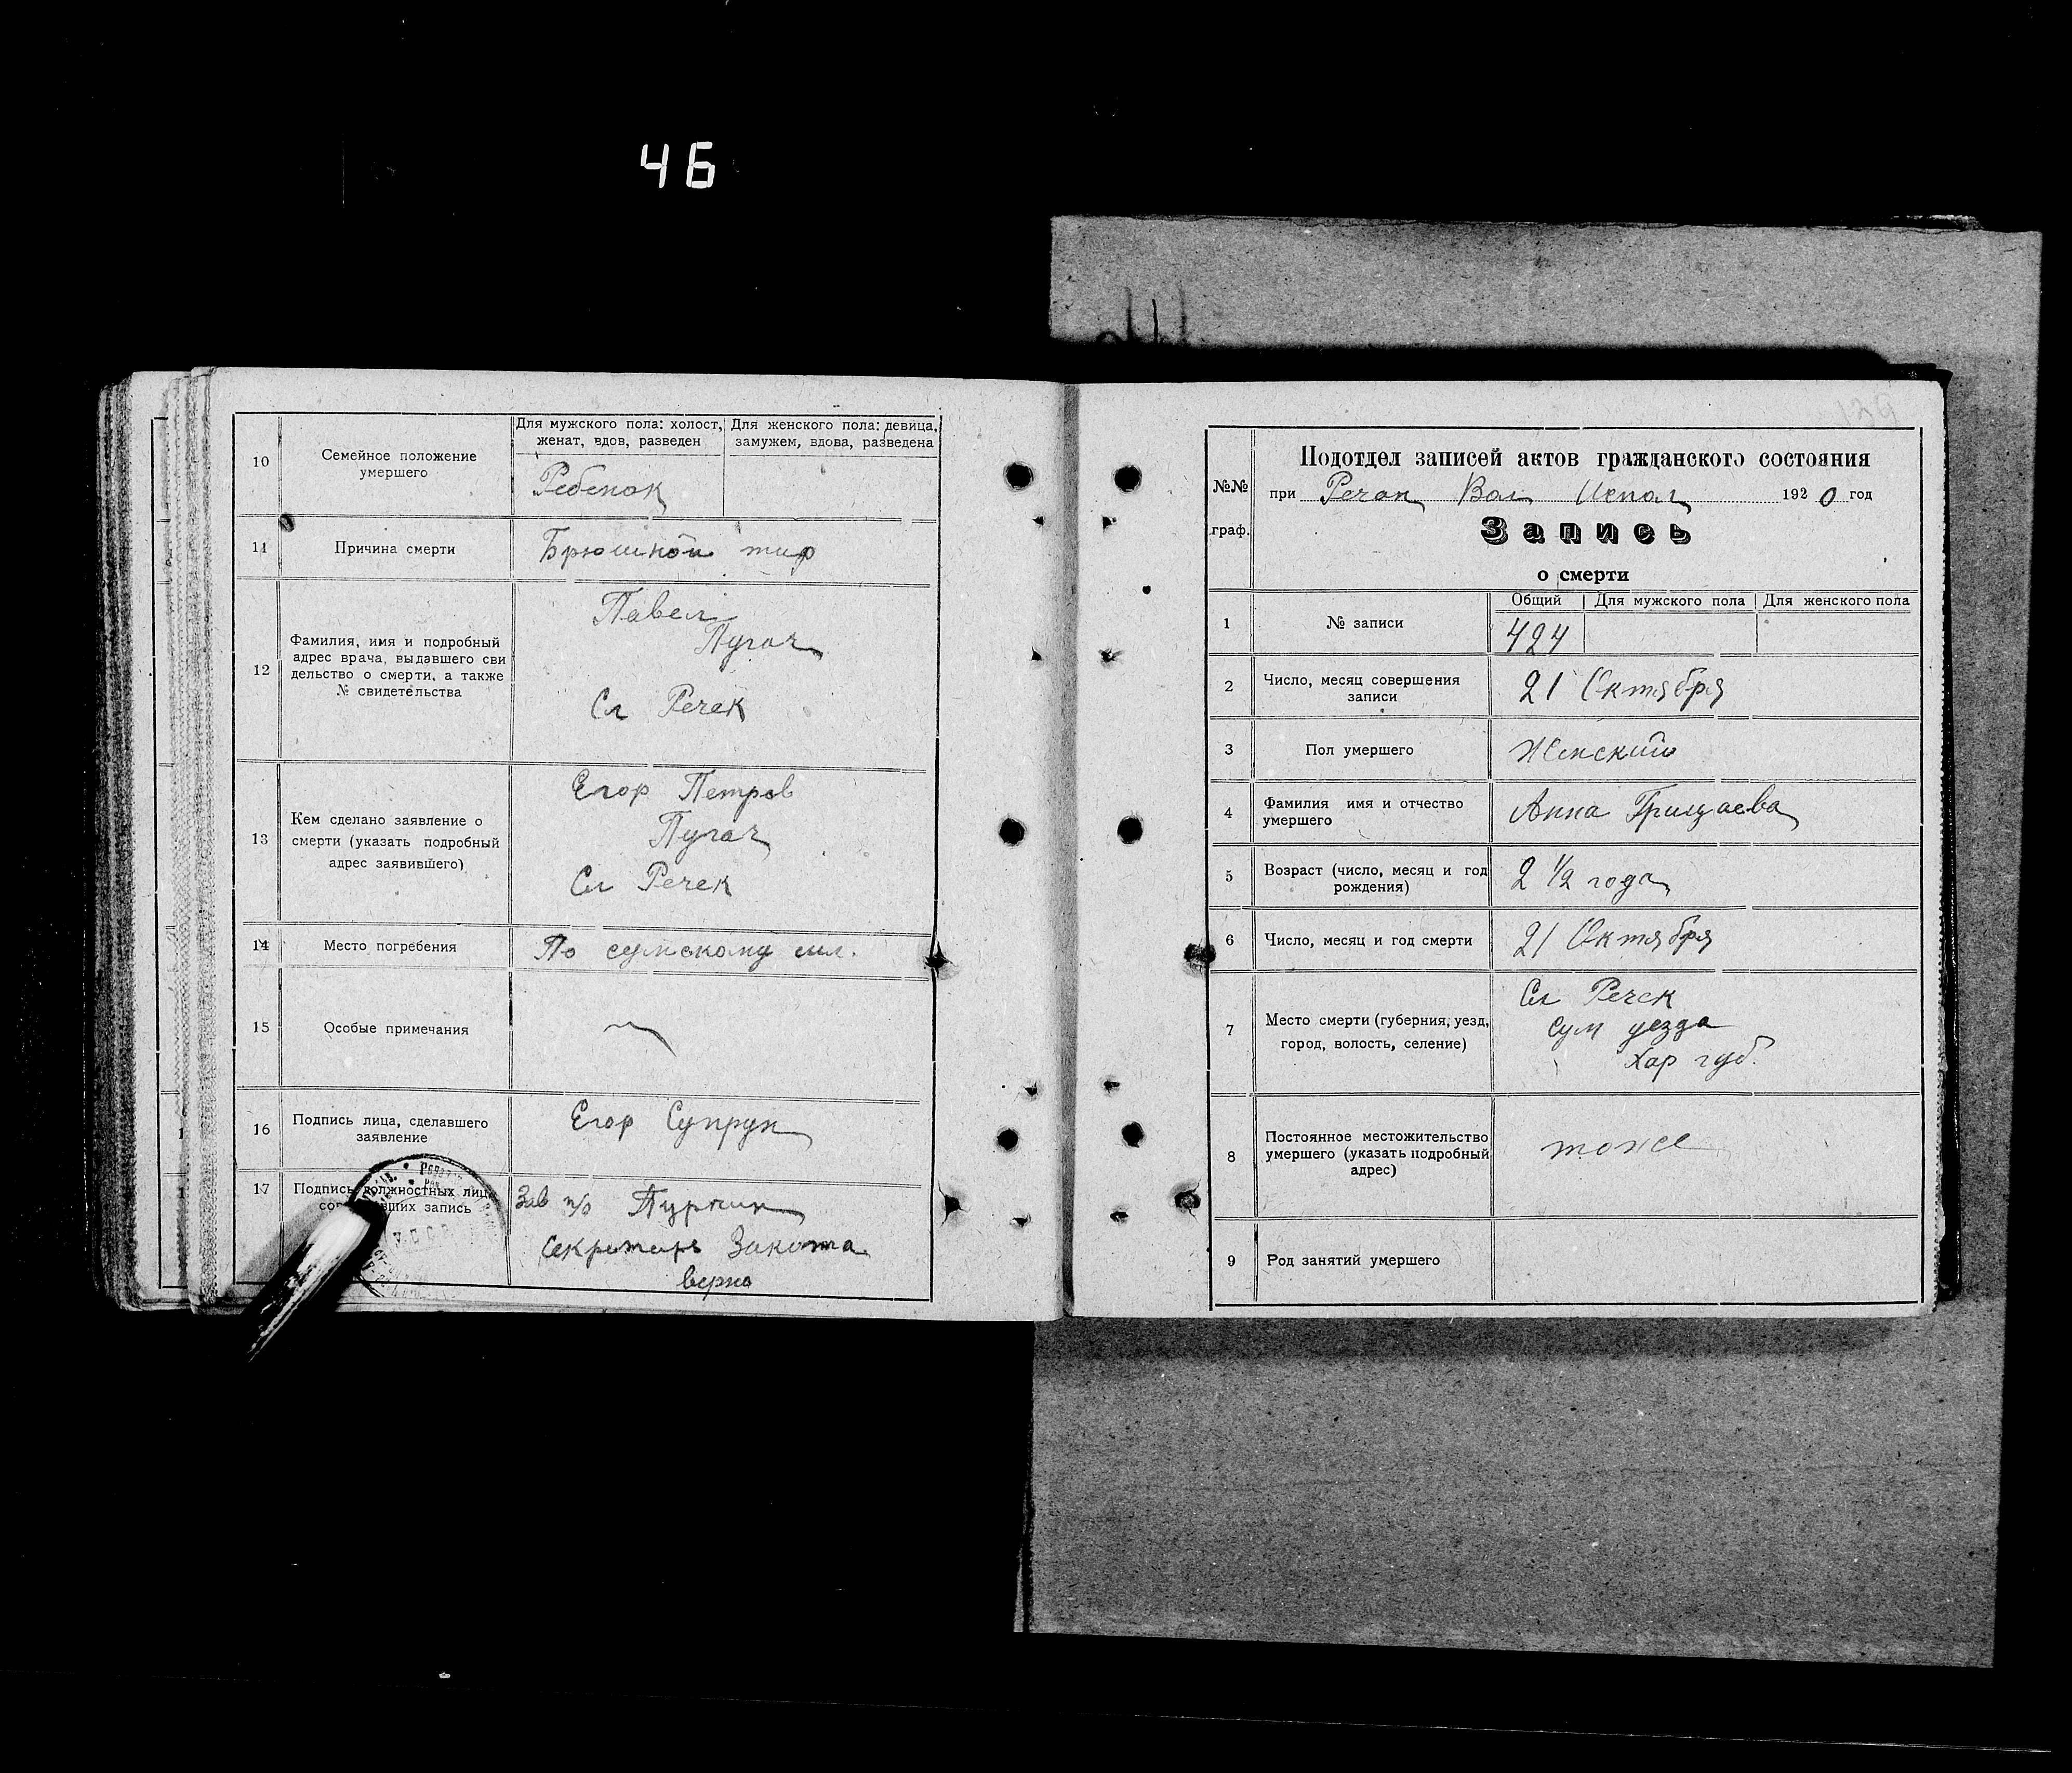 46
10
Семейное положение
умершего
Для мужского пола: холост,
женат, вдов, разведен
Для женского пола: девица,
замужем, вдова, разведена
Ребенок
11
Причина смерти
Брюшной тиф
12
Фамилия, имя и подробный
адрес врача, выдавшего сви
дельство о смерти, а также
№ свидетельства
Павел
Пугач
Сл Речек
13
Кем сделано заявление о
смерти (указать подробный
адрес заявившего)
Егор Петров
Пугач
Сл Речек
14
Место погребения
По сумскому шл.
15
Особые примечания
16
Подпись лица, сделавшего
заявление
Егор Супрун
17
Подпись должностных лиц,
запись
Зав п/о
Секретарь Закота
верно
129
№№
граф.
Подотдел записей актов гражданского состояния
при Речан Вол Испол 1920 год
Запись
о смерти
1
№ записи
Общий
Для мужского пола
Для женского пола
424
2
Число, месяц совершения
записи
21 Октября
3
Пол умершего
Женский
4
Фамилия имя и отчество
умершего
Анна Грицаева
5
Возраст (число, месяц и год
рождения)
2 1/2 года
6
Число, месяц и год смерти
21 Октября
7
Место смерти (губерния, уезд,
город, волость, селение)
Сл Речек
Сум уезда
Хар губ.
8
Постоянное местожительство
умершего (указать подробный
адрес)
тоже
9
Род занятий умершего